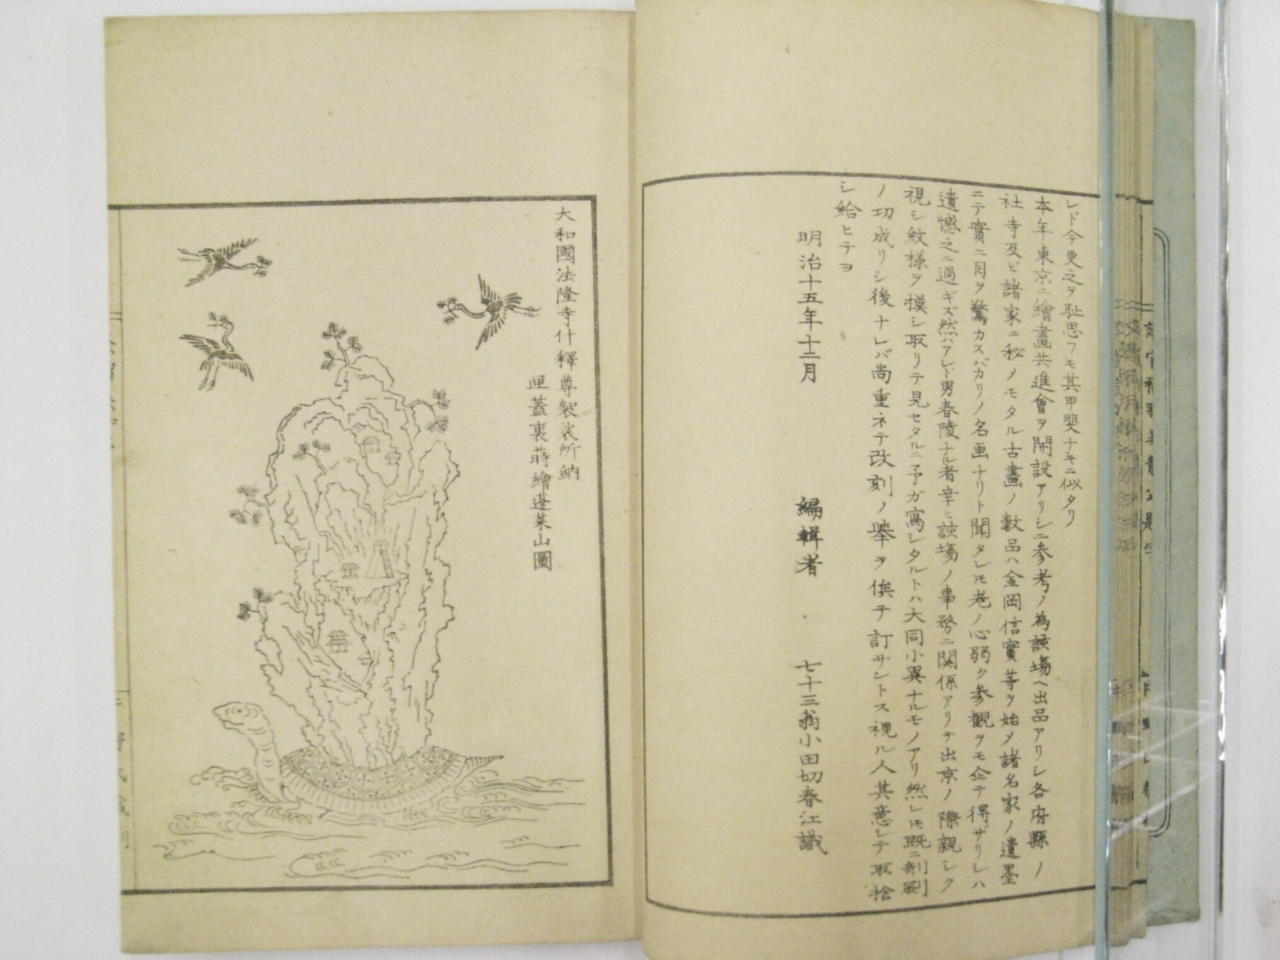 レド今更之ヲ耻思フモ其甲斐ナキニ似タリ
本年東京ニ繪畫共進會ヲ開設アリシニ參考ノ為該塲ヘ出品アリシ各府縣ノ
社寺及ビ諸家ニ秘メモタル古畫ノ數品ハ金岡信實等ヲ始メ諸名家ノ遺墨
ニテ實ニ目ヲ驚カスバカリノ名画ナリト聞タレ𪜈老ノ心弱ク参觀ヲモ企テ得ザリシハ
遺憾之ニ過ギズ然ハアレド男春陵ナル者幸ニ該塲ノ事務ニ関係アリテ出京ノ際親シク
視シ紋様ヲ摸シ取リテ見セタルニ予ガ寫シタルトハ大同小異ナルモノアリ然レ𪜈既ニ剞劂
ノ功成リシ後ナレバ尚重ネテ改刻ノ擧ヲ俟テ訂サントス視ル人其意シテ取捨
シ給ヒテヨ
明治十五年十二月
編輯者 七十三翁小田切春江識
大和國法隆寺什釋尊袈裟所納
匣蓋裏蒔繪蓬莱山圖